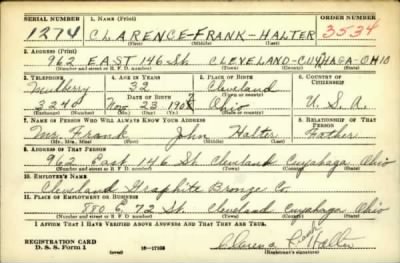 SERIAL NUMBER 1. NAME (Print) ORDER NUMBER
1274 CLARENCE-FRANK-HALTER 3534
(First) (Middle) (Last)
2. ADDRESS (Print)
962 EAST 146 St. CLEVELAND-CUYHAGA-OHIO
(Number and street or R. F. D. number) (Town) (County) (State)
3. TELEPHONE 4. AGE IN YEARS 5. PLACE OF BIRTH 6. COUNTRY OF CITIZENSHIP
Mulberry 32 Cleveland
DATE OF BIRTH (Town or county)
3240 Nov 23 1907 Ohio U. S. A.
(Exchange) (Number) (Mo.) (Day) (Yr.) (State or country)
7. NAME OF PERSON WHO WILL ALWAYS KNOW YOUR ADDRESS 8. RELATIONSHIP OF THAT PERSON
Mr. Frank John Halter Father
(Mr., Mrs., Miss) (First) (Middle) (Last)
9. ADDRESS OF THAT PERSON
962 East 146 St. Cleveland Cuyahoga Ohio
(Number and street or R. F. D. number) (Town) (County) (State)
10. EMPLOYER'S NAME
Cleveland Graphite Bronze Co.
11. PLACE OF EMPLOYMENT OR BUSINESS
880 E. 72 St. Cleveland Cuyahoga Ohio
(Number and street or R. F. D. number) (Town) (County) (State)
I AFFIRM THAT I HAVE VERIFIED ABOVE ANSWERS AND THAT THEY ARE TRUE.
REGISTRATION CARD
D. S. S. Form 1 (over) 16—17105 Clarence Frank Halter
(Registrant's signature)